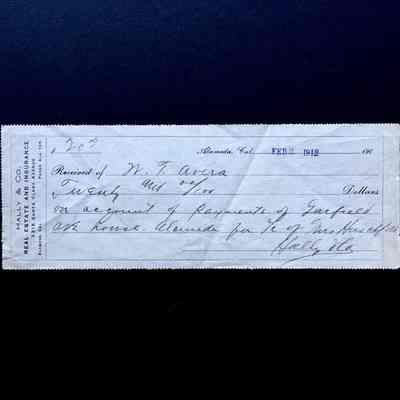 HALLY & CO.
REAL ESTATE AND INSURANCE
2315 SANTA CLARA AVENUE
$ 20.00 Alameda Cal. FEB 2 1912 191
Received of W. F. Avera
Twenty and 00/100 Dollars
on account of payments of Garfield
ave house Alameda for % of Mrs
Hally & Co